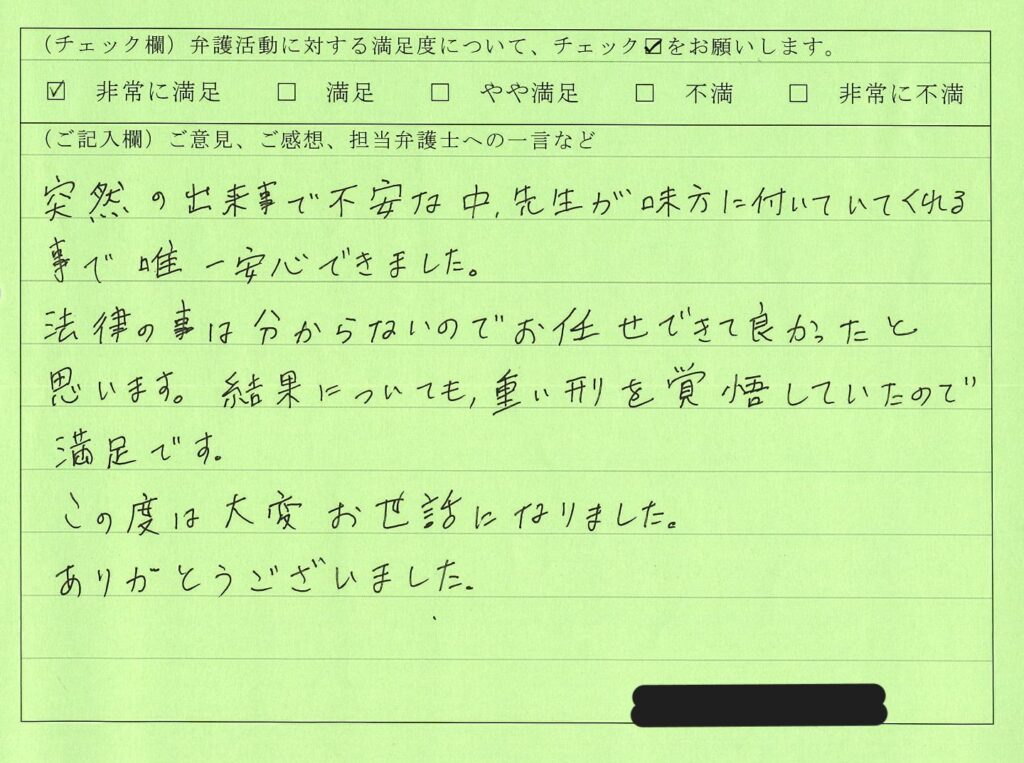 （チェック欄）弁護活動に対する満足度について、チェック☑をお願いします。
☑ 非常に満足 □ 満足 □ やや満足 □ 不満 □ 非常に不満
（ご記入欄）ご意見、ご感想、担当弁護士への一言など
突然の出来事で不安な中、先生が味方に付いていてくれる
事で唯一安心できました。
法律の事は分からないのでお任せできて良かったと
思います。結果についても、重い刑を覚悟していたので
満足です。
この度は大変お世話になりました。
ありがとうございました。